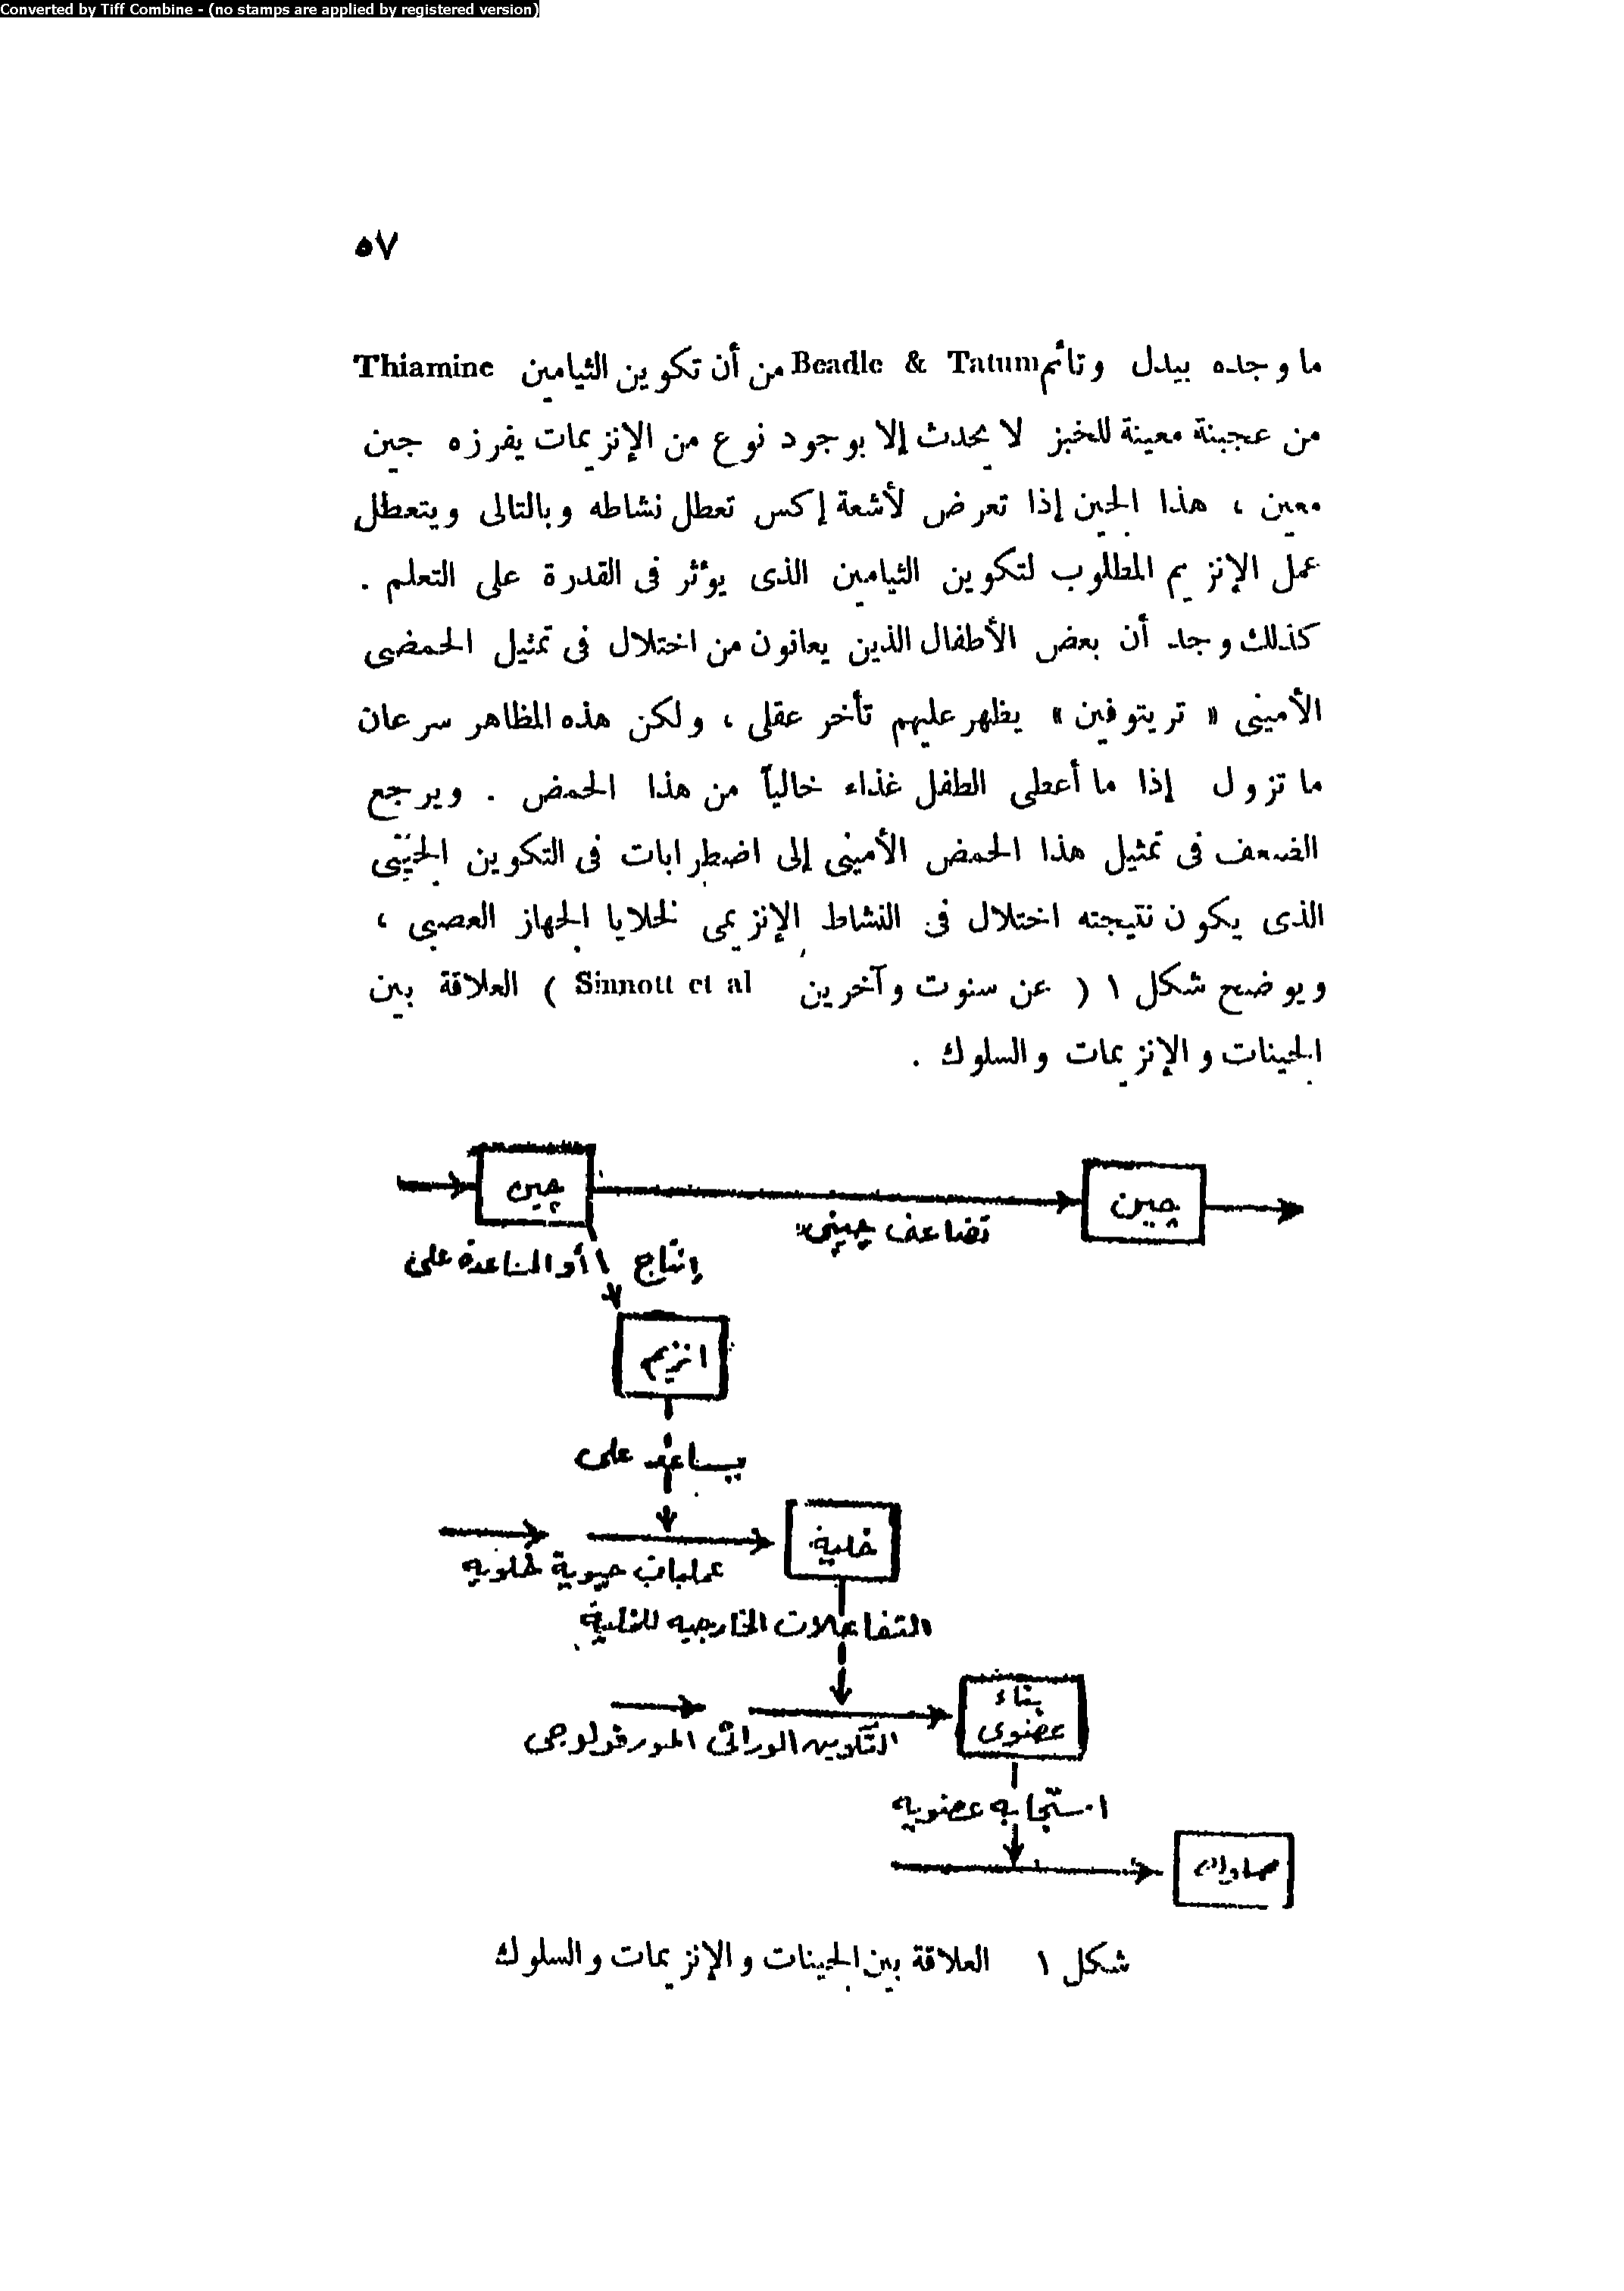 Converted by Tiff Combine - (no stamps are applied by registered version)
٥٧
ما وجده بيدل وتاتم Beadle & Tatum من أن تكوين الثيامين Thiamine
من عجينة معينة للخبز لا يحدث إلا بوجود نوع من الإنزيمات يفرزه جين
معين ، هذا الجين إذا تعرض لأشعة إكس تعطل نشاطه وبالتالى ويتعطل
عمل الإنزيم المطلوب لتكوين الثيامين الذى يؤثر فى القدرة على التعلم .
كذلك وجد أن بعض الأطفال الذين يعانون من اختلال فى تمثيل الحمضى
الأمينى « تريتوفين » يظهر عليهم تأخر عقلى ، ولكن هذه المظاهر سرعان
ما تزول إذا ما أعطى الطفل غذاء خالياً من هذا الحمض . ويرجع
الضعف فى تمثيل هذا الحمض الأمينى إلى اضطرابات فى التكوين الجينى
الذى يكون نتيجته اختلال فى النشاط الإنزيمى لخلايا الجهاز العصبى ،
ويوضح شكل ١ ( عن سنوت وآخرين Sinnott et al ) العلاقة بين
الجينات والإنزيمات والسلوك .
جين
جين
تضاعف جينى
إنتاج أو المساعدة على
انزيم
يساعد على
خلية
عمليات حيوية خلوية
التفاعلات الخارجيه للخلية
بناء
عضوى
التكوين الوراثى المورفولوجى
استجابه عضويه
شكل ١ العلاقة بين الجينات والإنزيمات والسلوك